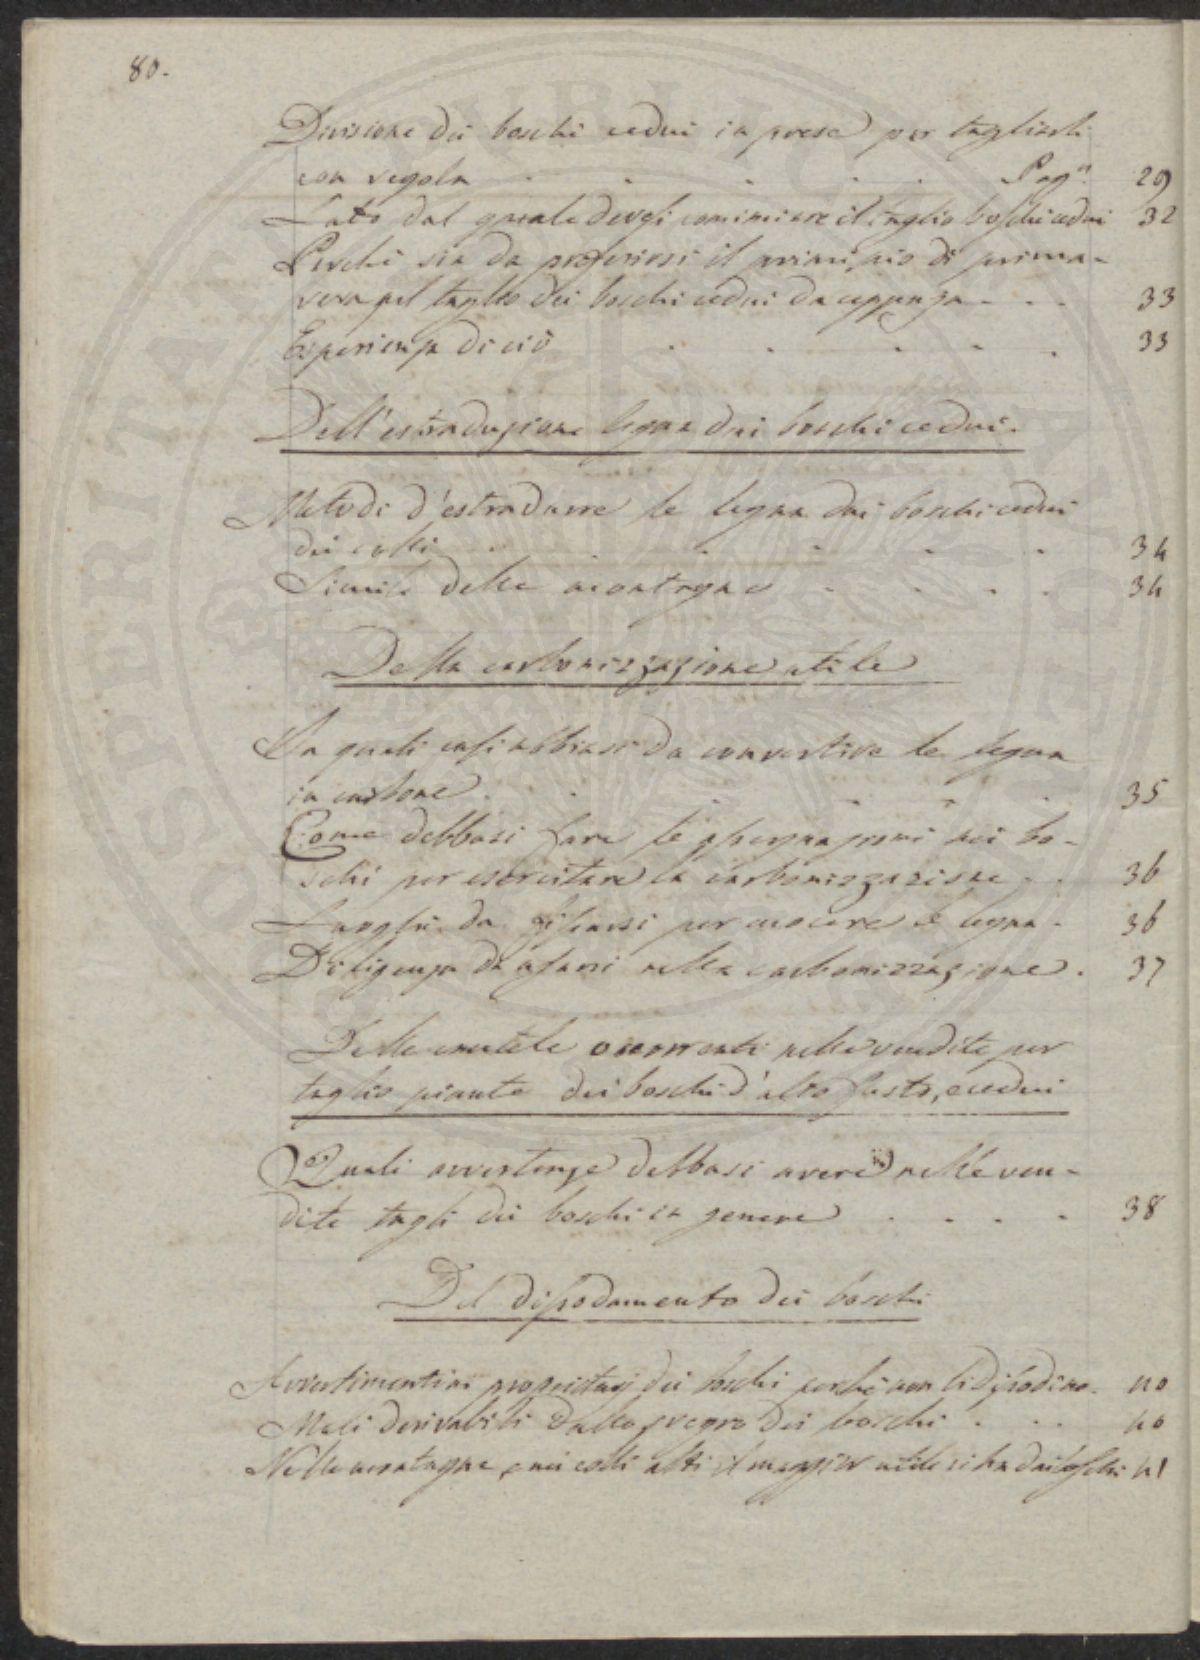 80.
Divisione dei boschi cedui in prese per tagliarli
con regola . . . . . Pagª 29
Lato dal quale devesi cominciare il taglio boschi cedui 32
Perchè sia da preferirsi il principio di prima-
vera pel taglio dei boschi cedui da ceppaja . . . 33
Esperienza di ciò . . . . . 33
Dell'estraduzione legna dai boschi cedui.
Metodi d'estradurre le legna dai boschi cedui
dei colli . . . . . 34
Simile delle montagne . . . . 34
Della carbonizzazione utile
In quali casi abbiasi da convertire le legna
in carbone . . . . . 35
Come debbasi fare le nei bo-
schi per esercitare la carbonizzazione . . 36
Luoghi da per cuocere le legna . 36
Diligenza da usarsi nella carbonizzazione . 37
Delle cautele occorrenti nelle vendite per
taglio piante dei boschi d'alto fusto, e cedui
Quali avvertenze debbasi avere nelle ven-
dite tagli dei boschi in genere . . . . 38
Del dissodamento dei boschi
Avvertimenti ai proprietarj dei boschi perchè non li dissodino. 40
Mali derivabili dallo svegro dei boschi . . . 40
Nelle montagne, e nei colli alti il maggior utile si ha dai boschi 41
OSPERITAS PUBLICA